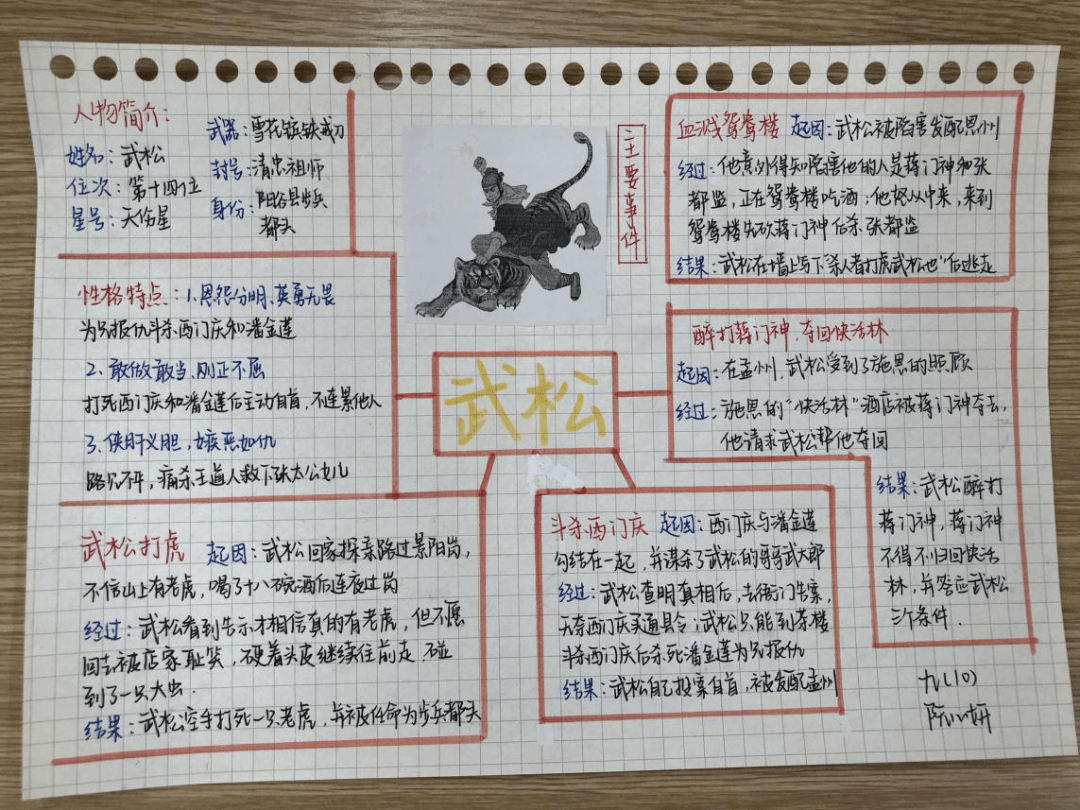 人物简介:
姓名:武松
位次:第十四位
星号:天伤星
武器:雪花镔铁戒刀
封号:清忠祖师
身份:阳谷县步兵
都头
性格特点:1.恩怨分明、英勇无畏
为兄报仇斗杀西门庆和潘金莲
2.敢做敢当、刚正不屈
打死西门庆和潘金莲后主动自首,不连累他人
3.侠肝义胆,嫉恶如仇
路见不平,痛杀王道人救下张太公女儿
武松打虎 起因:武松回家探亲路过景阳岗,
不信山上有老虎,喝了十八碗酒后连夜过岗
经过:武松看到告示才相信真的有老虎,但不愿
回去被店家耻笑,硬着头皮继续往前走,碰
到了一只大虫.
结果:武松空手打死一只老虎,并被任命为步兵都头
主要事件
武松
血溅鸳鸯楼 起因:武松被陷害发配恩州
经过:他意外得知陷害他的人是蒋门神和张
都监,正在鸳鸯楼吃酒;他怒从中来,来到
鸳鸯楼先砍蒋门神后杀张都监
结果:武松在墙上写下"杀人者打虎武松也"后逃走
醉打蒋门神,夺回快活林
起因:在孟州,武松受到了施恩的照顾
经过:施恩的"快活林"酒店被蒋门神夺去,
他请求武松帮他夺回
结果:武松醉打
蒋门神,蒋门神
不得不归回快活
林,并答应武松
三个条件.
斗杀西门庆 起因:西门庆与潘金莲
勾结在一起,并谋杀了武松的哥哥武大郎
经过:武松查明真相后,去衙门告案,
无奈西门庆买通县令;武松只能到茶楼
斗杀西门庆后杀死潘金莲为兄报仇
结果:武松自己投案自首,被发配孟州
九(10)